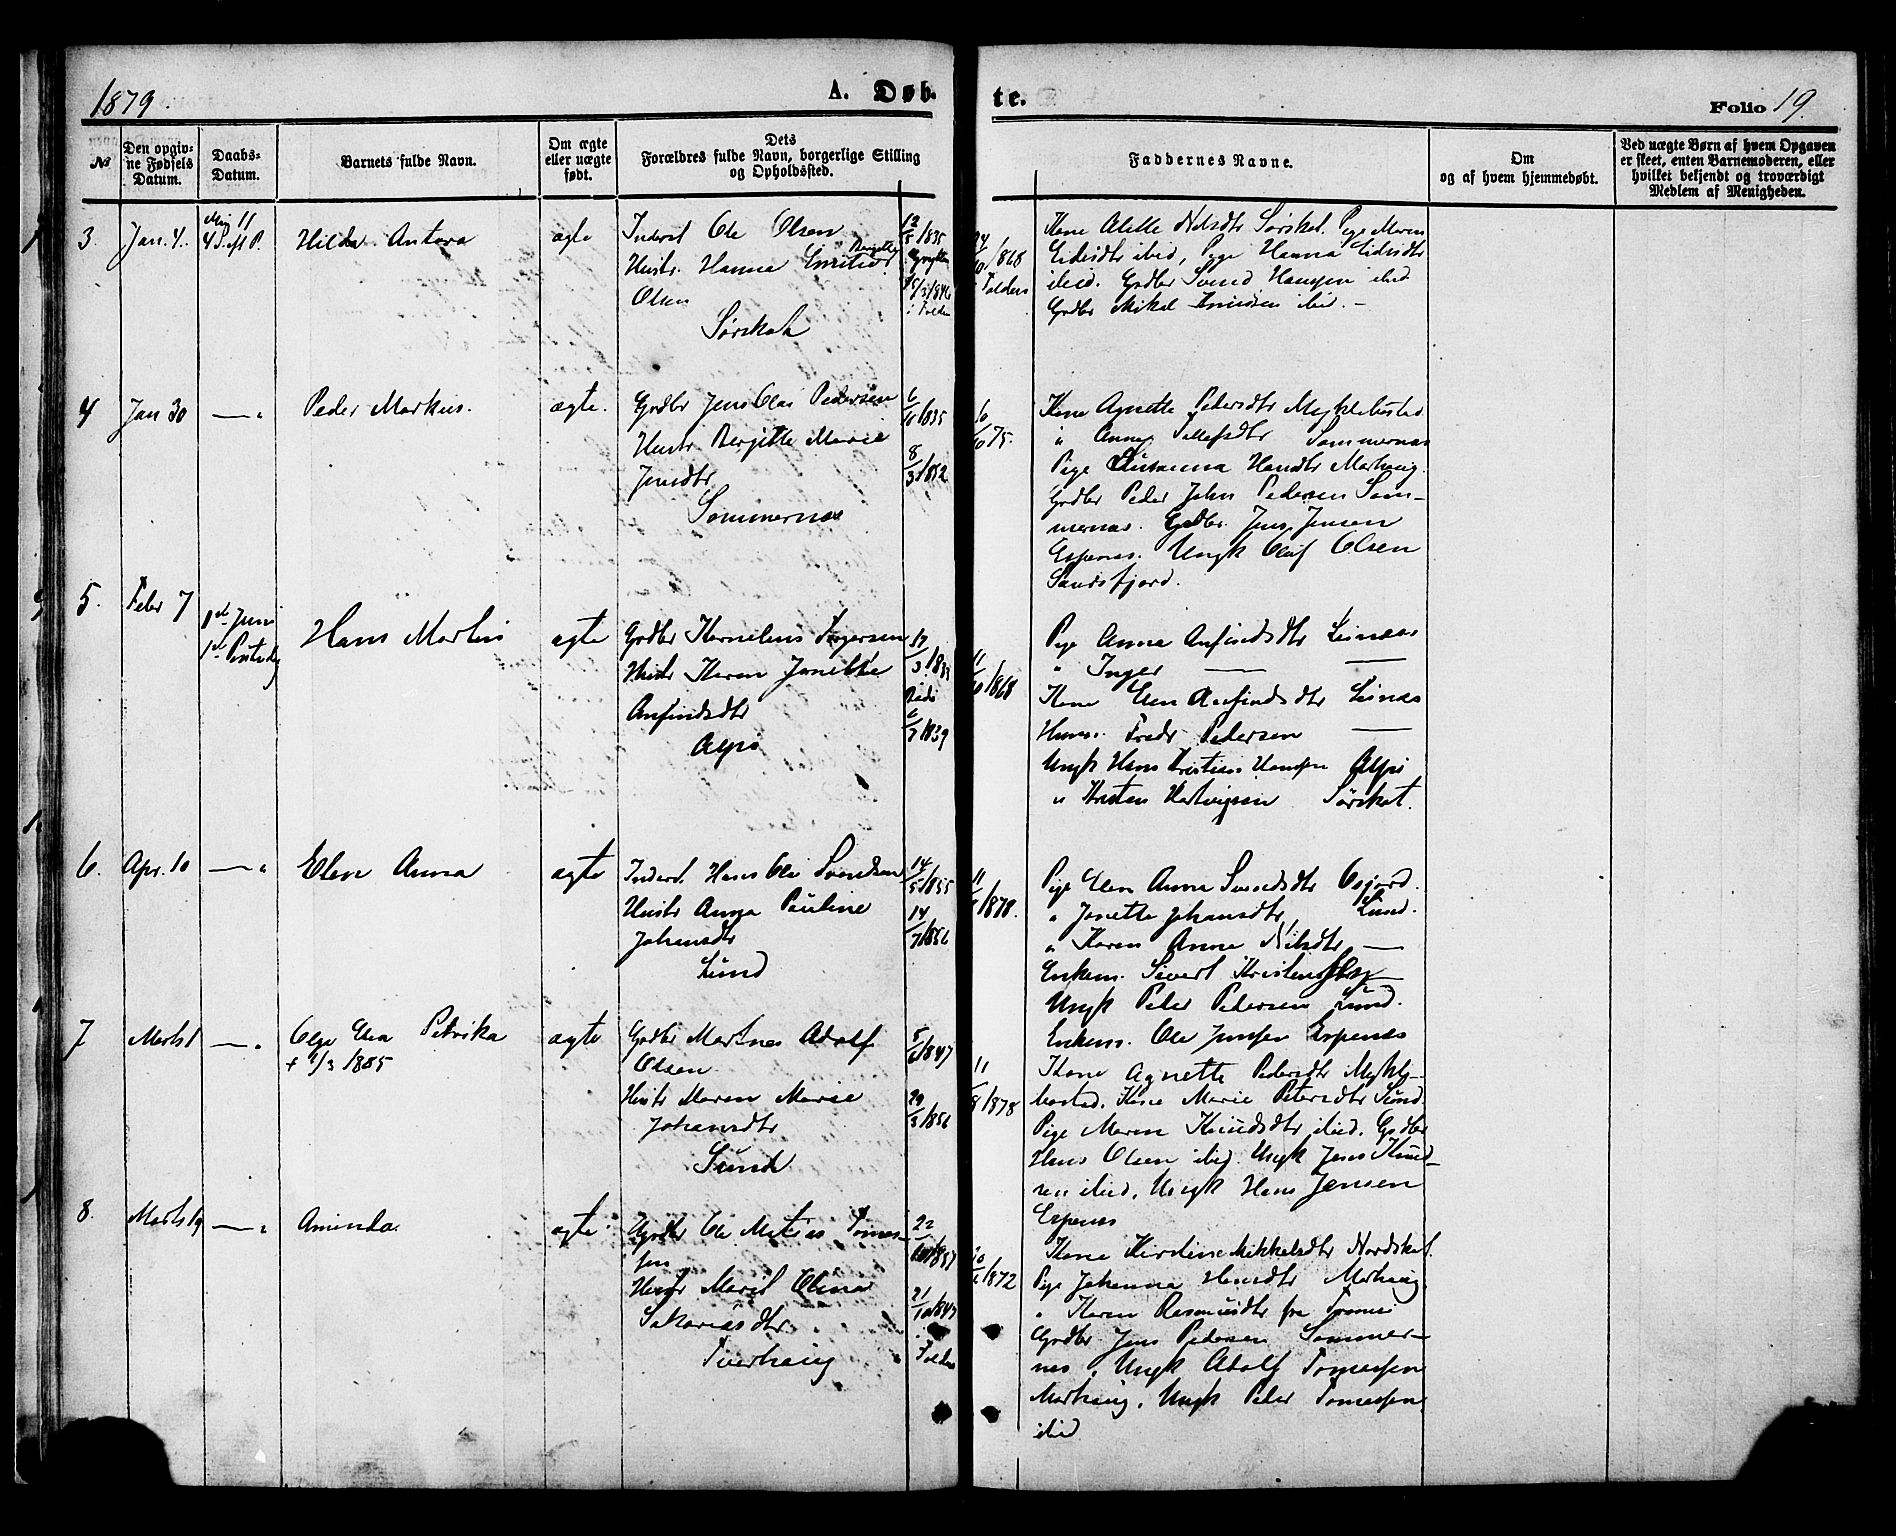 1879.
A. Døb-
te.
Folio 19.
№
Den opgiv-
ne Fødsels
Datum.
Daabs-
Datum.
Barnets fulde Navn.
Om ægte
eller uægte
født.
Dets
Forældres fulde Navn, borgerlige Stilling
og Opholdssted.
Faddernes Navne.
Om
og af hvem hjemmedøbt.
Ved uægte Børn af hvem Opgaven
er skeet, enten Barnemoderen, eller
hvilket bekjendt og troværdigt
Medlem af Menigheden.
3
Jan. 4.
Mai 11
Hilda Antora
ægte
Inderst Ole Olsen
Hustr. Hanna
Olsen
Sørskot
12/5 1835
/1868
i Folden
Kone Alette Nilsdtr Sørskot. Pige Maren
ibid, Pige Hanna
ibid. Grdbr Svend Hansen ibid
Grdbr Mikal Knudsen ibid. –
4
Jan 30
— "
Peder Markus.
ægte.
Grdbr Jens Olai Pedersen
Hustr Bergitte Marie
Jensdtr
Sommernæs
1835
8/3 1852
75.
Kone Agnette Pedersdtr Myklebustad
" Anne Sommernæs
Pige Susanna Hansdtr Marhaug.
Grdbr Peder Johan Pedersen Som-
mernæs. Grdbr. Jens Jensen
Espenes. Ungk Oluf Olsen
Sandsfjord.
5.
Febr 7
1st Juni
Hans Martin
ægte
Grdbr Kornelius
Hustr Karen Janette
Anfindsdtr
Alsøi
1839
/1868
Pige Anna Anfindsdtr Leinæs
" Inger — —
Kone Elen Anfindsdtr Leinæs
Fredr Pedersen —
Ungk Hans Kristian Hansen Alsøi
" Kristen Hartvigsen Sørskot.
6.
Apr. 10
— "
Elen Anna
ægte
Inderst. Hans Ole Svendsen
Hustr Anna Pauline
Johansdtr
Lund
14/5 1855
14/7 1856
/1878.
Pige Elen Anna Svendsdtr
" Janette Johansdtr, Lund.
" Karen Anna Nilsdtr —
Enkem. Sivert
Ungk Peder Pedersen Lund.
Enkem. Ole Jensen Espenes
7
Marts 1
— "
Olge Elea Petrika
+ 2/3 1885
ægte
Grdbr Martnes Adolf
Olsen
Hustr Maren Marie
Johansdtr
Sund
1847
29/3 1856
11/8 1878
Kone Agnette Pedersdtr Mykle-
bostad. Kone Marie Petersdtr Sund
Pige Maren Knudsdtr ibid. Grdbr
Hans Olsen ibid. Ungk Jens Knud-
sen ibid. Ungk Hans Jensen
Espenes
8.
Marts 19
— "
Aminda.
ægte
Grdbr Ole Matias Tomas-
sen
Hustr Marit Olina
Sakariasdtr
Tverhaug
21/10 1847
i Folden
/1872
Kone Kirstine Mikkelsdtr Nordskot.
Pige Johanna Hansdtr Marhaug
" Karen Rasmusdtr fra Tromsø
Grdbr Jens Pedersen Sommer-
nes, Ungk Adolf Tomassen
Marhaug, Ungk Peder Tomassen
ibid